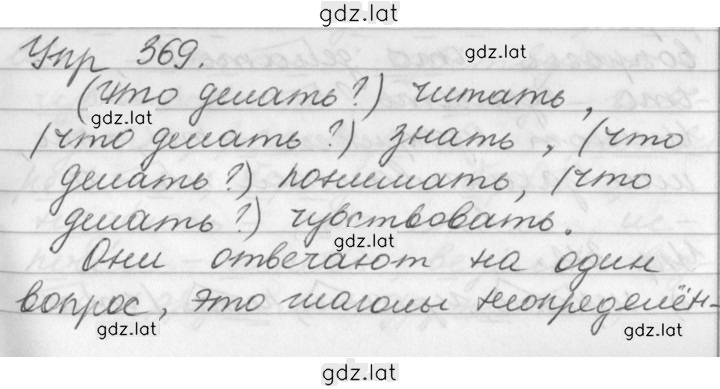 gdz.lat
Упр 369.
gdz.lat
(Что делать?) читать,
gdz.lat
(что делать?) знать, (что
делать?) понимать, (что
делать?) чувствовать.
gdz.lat
Они отвечают на один
вопрос, это глаголы неопределён-
gdz.lat
gdz.lat
gdz.lat